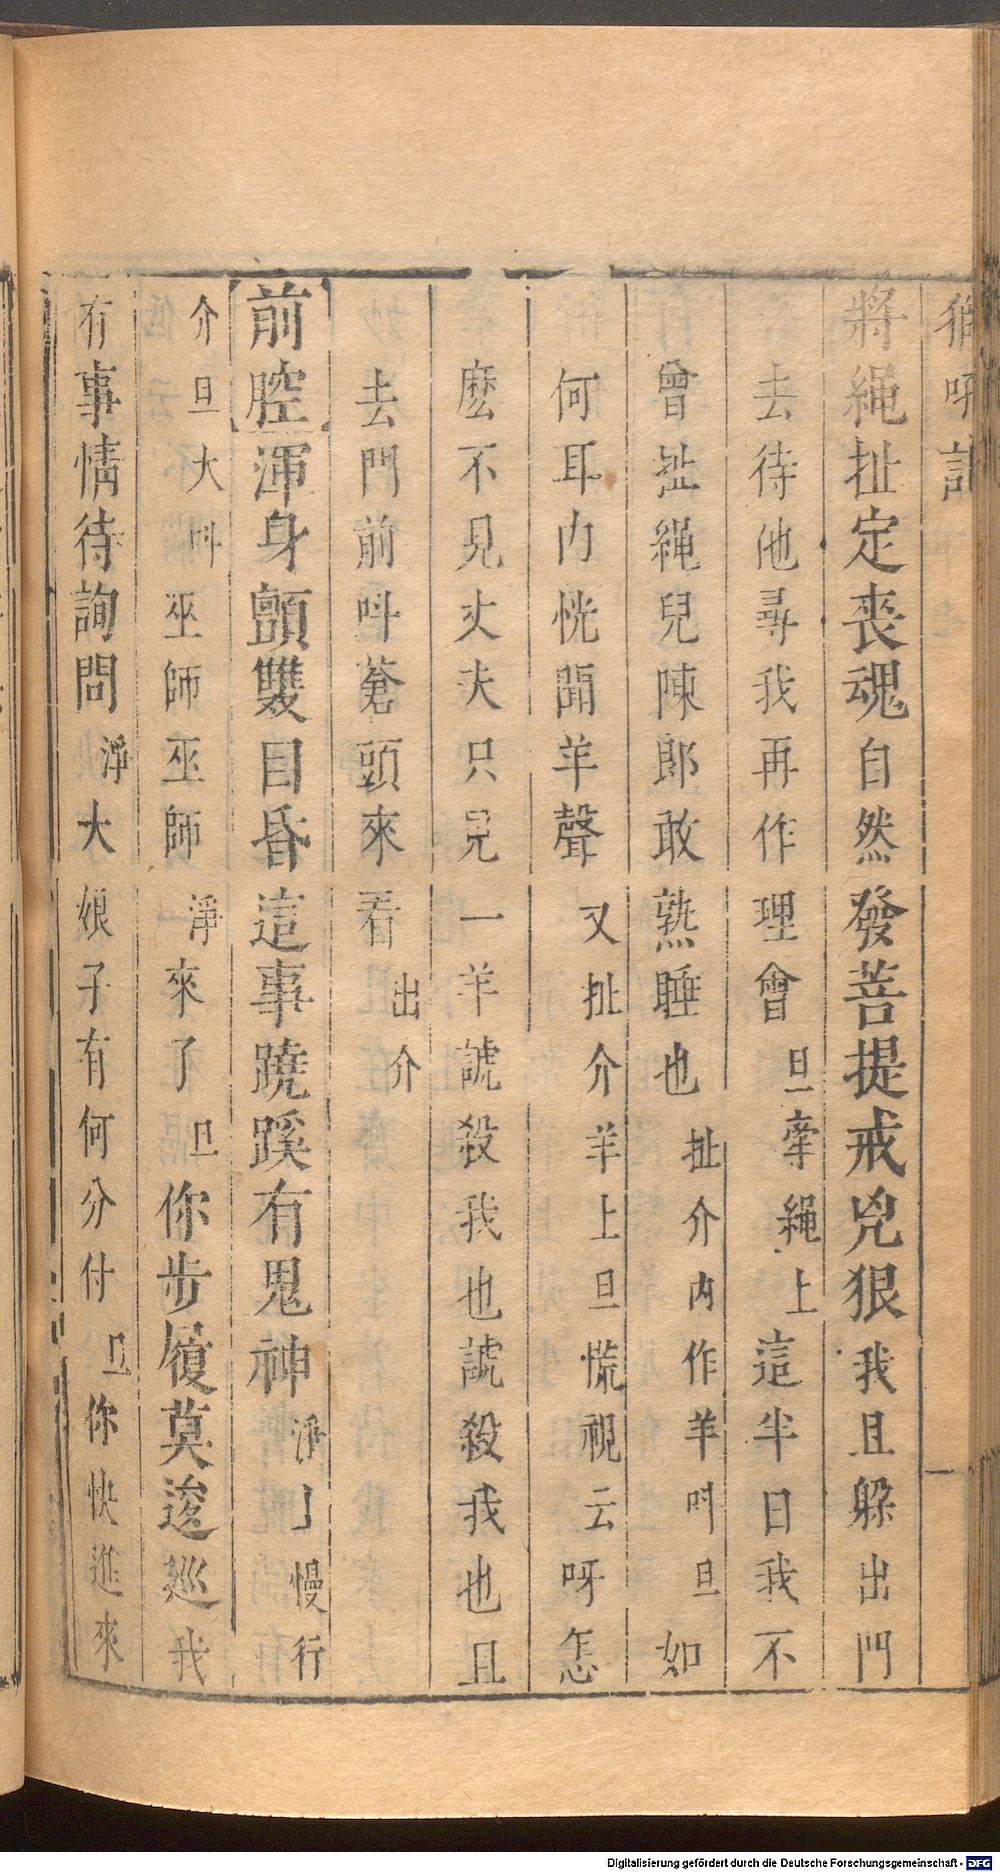 獅吼記
一
將繩扯定喪魂自然發菩提戒兇狠我且躲出門
去待他尋我再作理會旦牽繩上這半日我不
曾扯繩兒陳郎敢熟睡也扯介內作羊叫旦如
何耳內恍聞羊聲又扯介羊上旦慌視云呀怎
麽不見丈夫只見一羊諕殺我也諕殺我也且
去門前呌蒼頭來看出介
前腔渾身顫雙目昏這事蹺蹊有鬼神淨上慢行
介旦大呌巫師巫師淨來了旦你步履莫逡巡我
有事情待詢問淨大娘子有何分付旦你快進來
Digitalisierung gefördert durch die Deutsche Forschungsgemeinschaft - DFG